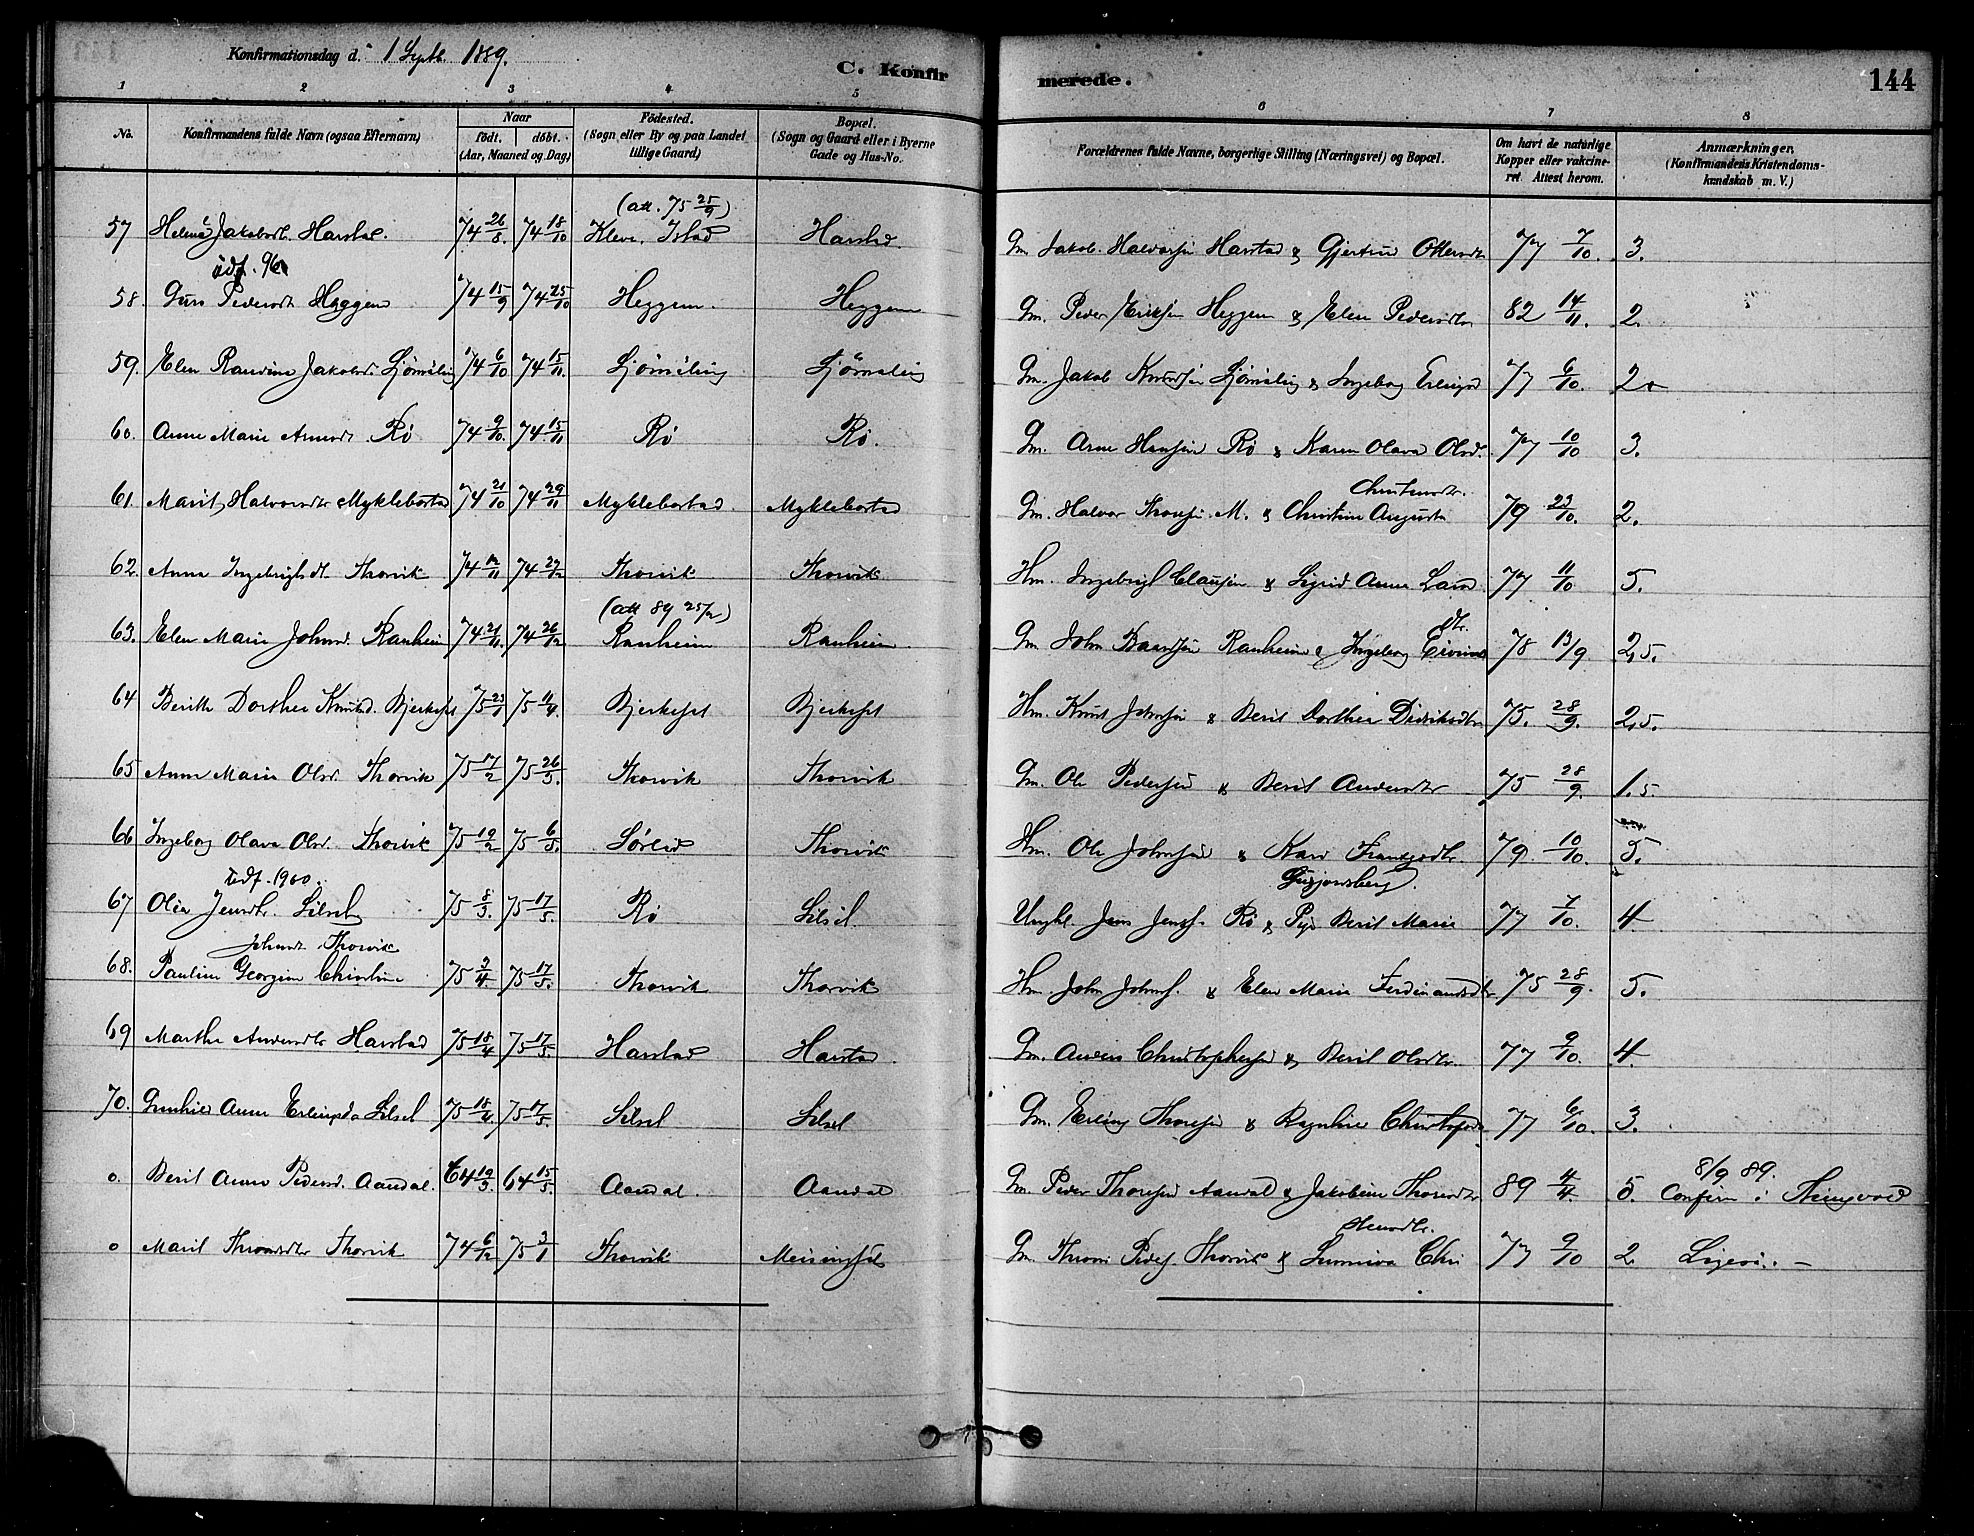 Konfirmationsdag d. 1 Septb. 1889.
C. Konfirmerede.
144
1 2 3 4 5 6 7 8
No. Konfirmandens fulde Navn (ogsaa Efternavn) Naar födt. döbt. (Aar, Maaned og Dag) Födested. (Sogn eller By og paa Landet tillige Gaard) Bopæl. (Sogn og Gaard eller i Byerne Gade og Hus-No. Forældrenes fulde Navne, borgerlige Stilling (Næringsvei) og Bopæl. Om havt de naturlige Kopper eller vakcineret. Attest herom. Anmærkninger. (Konfirmandens Kristendomskundskab m. V.)
(att. 75 25/9)
57 Helena Jakobsdt. Harstad. 74 26/8 74 18/10 Kleve, Istad Harstad. Gm. Jakob Halvorsen Harstad & Gjertrud Ottersdtr 77 7/10. 3.
udf. 96
58. Guru Pedersdt Heggem 74 15/9 74 25/10 Heggem. Heggem Gm. Peder Eriksen Heggem & Elen Pedersdtr 82 14/11. 2.
59. Elen Randine Jakobsd. Sjömæling 74 6/10 74 15/11. Sjömæling Sjömæling Gm. Jakob Knudsen Sjömæling & Ingeborg Erlingsd 77 6/10. 2.
60. Anne Marie Arnesdt. Rö 74 9/10. 74 15/11 Rö Rö. Gm. Arne Hansen Rö & Karen Olava Olsd. 77 10/10 3.
Christensdtr.
61. Marit Halvorsdtr Myklebostad 74 21/10 74 29/11 Myklebostad. Myklebostad Gm. Halvor Thoresen M. & Christine Augusta 79 23/10. 2.
62. Anna Ingebrigtsdt. Thorvik 74 12/11 74 27/12 Thorvik Thorvik. Hm. Ingebrigt Clausen & Sigrid Anne Larsd. 77 11/10 5.
(att 89 25/2)
63. Elen Marie Johnsd. Ranheim 74 21/11. 74 26/12 Ranheim Ranheim. Gm John Baardsen Ranheim & Ingeborg Eivindsdtr. 78 13/9 2,5.
64 Berith Dorthea Knutsd. Bjerkeset 75 23/1 75 11/4. Bjerkeset Bjerkeset Hm. Knut Johnsen & Berit Dorthea Didriksdtr 75. 28/9. 2,5.
65 Anne Marie Olsd. Thorvik 75 17/2 75 26/3. Thorvik Thorvik Gm. Ole Pedersen & Berit Andersdtr 75 28/9. 1.5.
66 Ingeborg Olava Olsd. Thorvik 75 19/2 75 6/5. Sörlid Thorvik Hm. Ole Johnsen & Kari Frantzsdtr. 79. 10/10. 5.
udf. 1900.
67 Olia Jensdtr. Silset 75 8/3. 75 17/5. Rö Silset. Ungkl. Jens Jensen Rö & Pige Berit Marie 77 7/10. 4
Johnsdt Thorvik
68. Pauline Georgine Christine 75 2/4. 75 17/5. Thorvik Thorvik Hm. John Johns. & Elen Marie Ferdinandsdtr 75 28/9. 5.
69 Marthe Andersdtr Harstad 75 18/4 75 17/5. Harstad Harstad. Gm. Anders Christophersen & Berit Olsdtr. 77 9/10. 4.
70. Gunhild Anne Erlingsd. Silset 75 18/4. 75 17/5. Silset Silset Gm. Erling Thoresen & Ragnhild Christophd. 77 6/10. 3.
8/9 89.
o. Berit Anne Pedersd. Aandal. 64 19/3. 64 15/5. Aandal. Aandal Gm. Peder Thoresen Aandal & Jakobine Thoresdtr 89 4/4. 5. Confirm. i Thingvold
o Marit Throndsdtr Thorvik 74 6/12 75 3/1 Thorvik Meisingset Gm. Thrond Peders. Thorvik & Sunniva 77 9/10 2